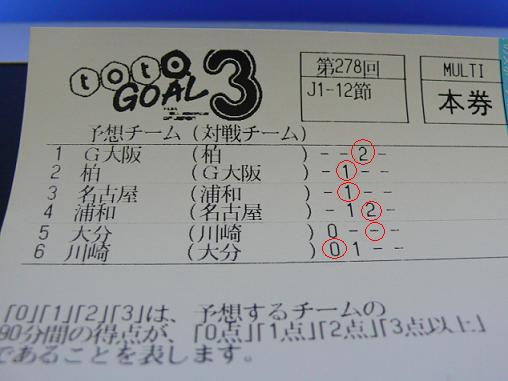 toto GOAL 3
第278回
J1-12節
MULTI
本券
予想チーム (対戦チーム)
1 G大阪 (柏) --2-
2 柏 (G大阪) -1--
3 名古屋 (浦和) -1--
4 浦和 (名古屋) -12-
5 大分 (川崎) 0---
6 川崎 (大分) 01--
「0」「1」「2」「3」は、予想するチームの
90分間の得点が、「0点」「1点」「2点」「3点以上」
であることを表します。